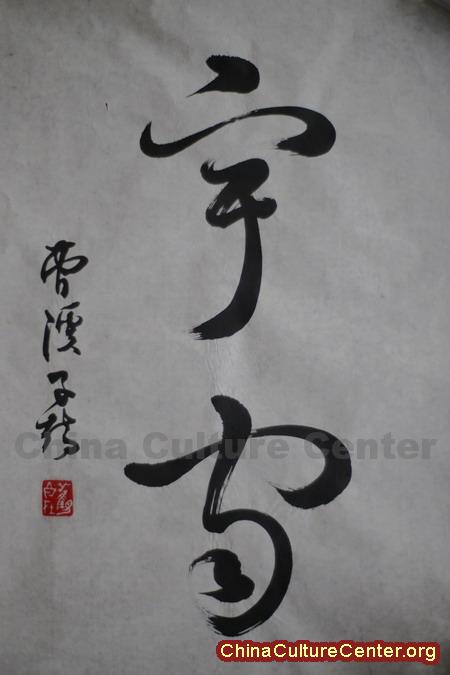 宇宙
曹溪子
China Culture Center
ChinaCultureCenter.org